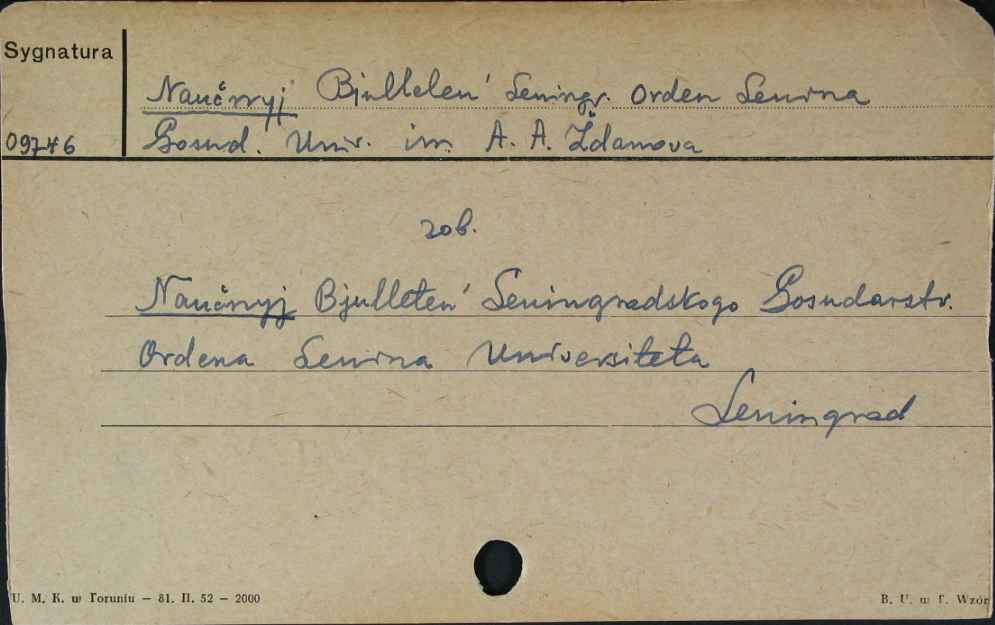 Sygnatura
Naučnyj Bjulleten' Leningr. Orden Lenina
09746 Gosud. Univ. im. A. A. Ždanova
zob.
Naučnyj Bjulleten' Leningradskogo Gosudarstv.
Ordena Lenina Universiteta
Leningrad
U. M. K. w Toruniu — 81. II. 52 — 2000
B. U. w T. Wzór